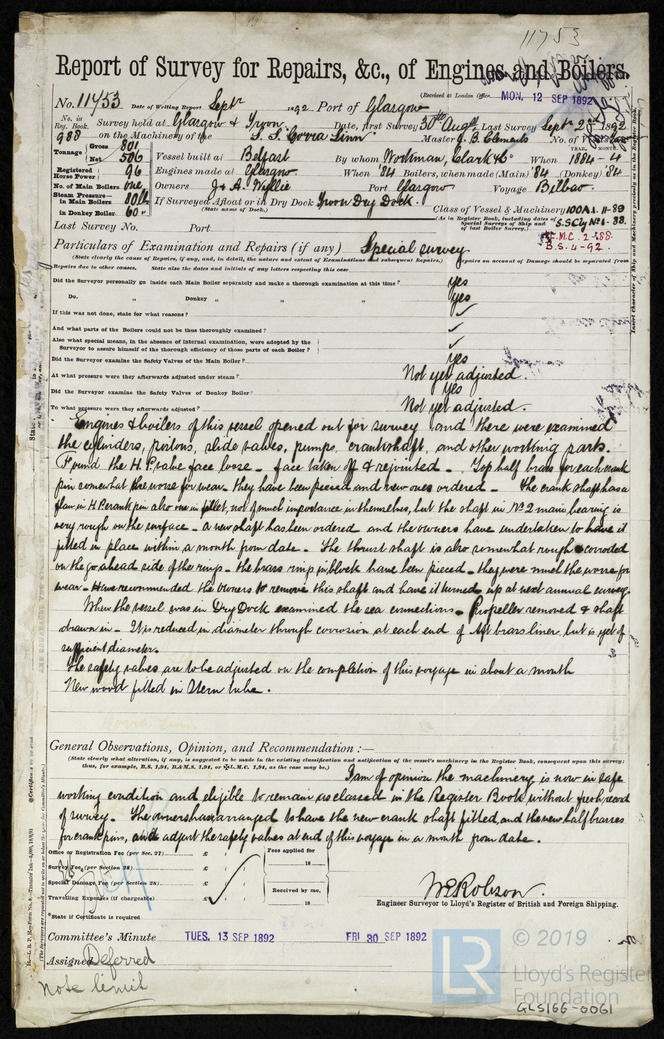 11753
Report of Survey for Repairs, &c., of Engines and Boilers.
(Received at London Office, MON. 12 SEP 1892)
No. 11453 Date of Writing Report Septr 1892 Port of Glasgow
No. in Reg. Book. 988 Survey held at Glasgow & Troon Date, first Survey 30th Augt Last Survey Septr 2nd 1892
on the Machinery of the S.S. Corra Linn Master J. B. Clements No. of
Tonnage Gross 801 Net 506 Vessel built at Belfast By whom Workman, Clark & Co When 1884 - 4
Registered Horse Power 96 Engines made at Glasgow When '84 Boilers, when made (Main) '84 (Donkey) '84
No. of Main Boilers one Owners J. & A. Wyllie Port Glasgow Voyage Bilbao
Steam Pressure in Main Boilers 80 lb If Surveyed Afloat or in Dry Dock Troon Dry Dock.
in Donkey Boiler 60 " (State name of Dock.) Class of Vessel & Machinery 100A1. 11-89
(As in Register Book, including dates of Special Surveys of Ship and of last Boiler Survey.) S.S Cly No 1 - 88.
Last Survey No. Port L.M.C. 2-88.
B.S. 4-92.
Particulars of Examination and Repairs (if any) Special survey
(State clearly the cause of Repairs, if any, and, in detail, the nature and extent of Examinations and subsequent Repairs.) Repairs on account of Damage should be separated from
Repairs due to other causes. State also the dates and initials of any letters respecting this case.
Did the Surveyor personally go inside each Main Boiler separately and make a thorough examination at this time? yes
Do. " Donkey " " " yes
If this was not done, state for what reasons?
And what parts of the Boilers could not be thus thoroughly examined?
Also what special means, in the absence of internal examination, were adopted by the
Surveyor to assure himself of the thorough efficiency of those parts of each Boiler?
Did the Surveyor examine the Safety Valves of the Main Boiler? yes
At what pressure were they afterwards adjusted under steam? Not yet adjusted.
Did the Surveyor examine the Safety Valves of Donkey Boiler? yes
To what pressure were they afterwards adjusted? Not yet adjusted.
Engines & boilers of this vessel opened out for survey and there were examined
the cylinders, pistons, slide valves, pumps, crankshaft, and other working parts.
Found the H.P. valve face loose - face taken off & rejointed - Top half brass for each crank
pin somewhat the worse for wear, they have been pieced and new ones ordered - The crank shaft has a
flaw in H.P. crank pin also one in fillet, not of much importance in themselves, but the shaft in No 2 main bearing is
very rough on the surface - a new shaft has been ordered and the owners have undertaken to have it
fitted in place within a month from date. The thrust shaft is also somewhat rough & corroded
on the go ahead side of the rings - the brass rings in block have been pieced - they were much the worse for
wear - Have recommended the owners to remove this shaft and have it turned up at next annual survey.
When the vessel was in Dry Dock examined the sea connections. Propeller removed & shaft
drawn in - It is reduced in diameter through corrosion at each end of Aft brass liner, but is yet of
sufficient diameter.
The safety valves are to be adjusted on the completion of this voyage in about a month
New wood fitted in Stern tube.
General Observations, Opinion, and Recommendation :—
(State clearly what alteration, if any, is suggested to be made in the existing classification and notification of the vessel's machinery in the Register Book, consequent upon this survey;
thus, for example, B.S. 1,94, B.&M.S. 1,94, or L.M.C. 1,94, as the case may be.)
I am of opinion the machinery is now in safe
working condition and eligible to remain as classed in the Register Book without fresh record
of survey. The owners have arranged to have the new crank shaft fitted, and the new half brasses
for crank pins, and adjust the safety valves at end of this voyage in a month from date.
Office or Registration Fee (per Sec. 27) £ Fees applied for
Survey Fee (per Section 28) £ 18
Special Damage Fee (per Section 28) £ Received by me,
Travelling Expenses (if chargeable) £ 18
Wm Robson.
Engineer Surveyor to Lloyd's Register of British and Foreign Shipping.
*State if Certificate is required
Committee's Minute TUES. 13 SEP 1892 FRI. 30 SEP 1892
Assigned Deferred
note limit
LR © 2019
Lloyd's Register
Foundation
GLS166-0061